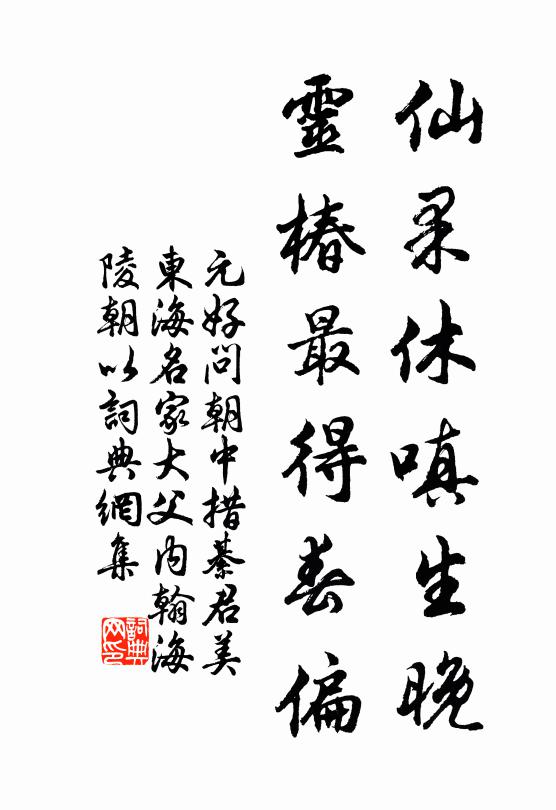 仙果休嗔生晚
靈椿最得春偏
元好问朝中措綦君美
東海名家大父内翰海
陵朝以詞典網集
詞典
网印